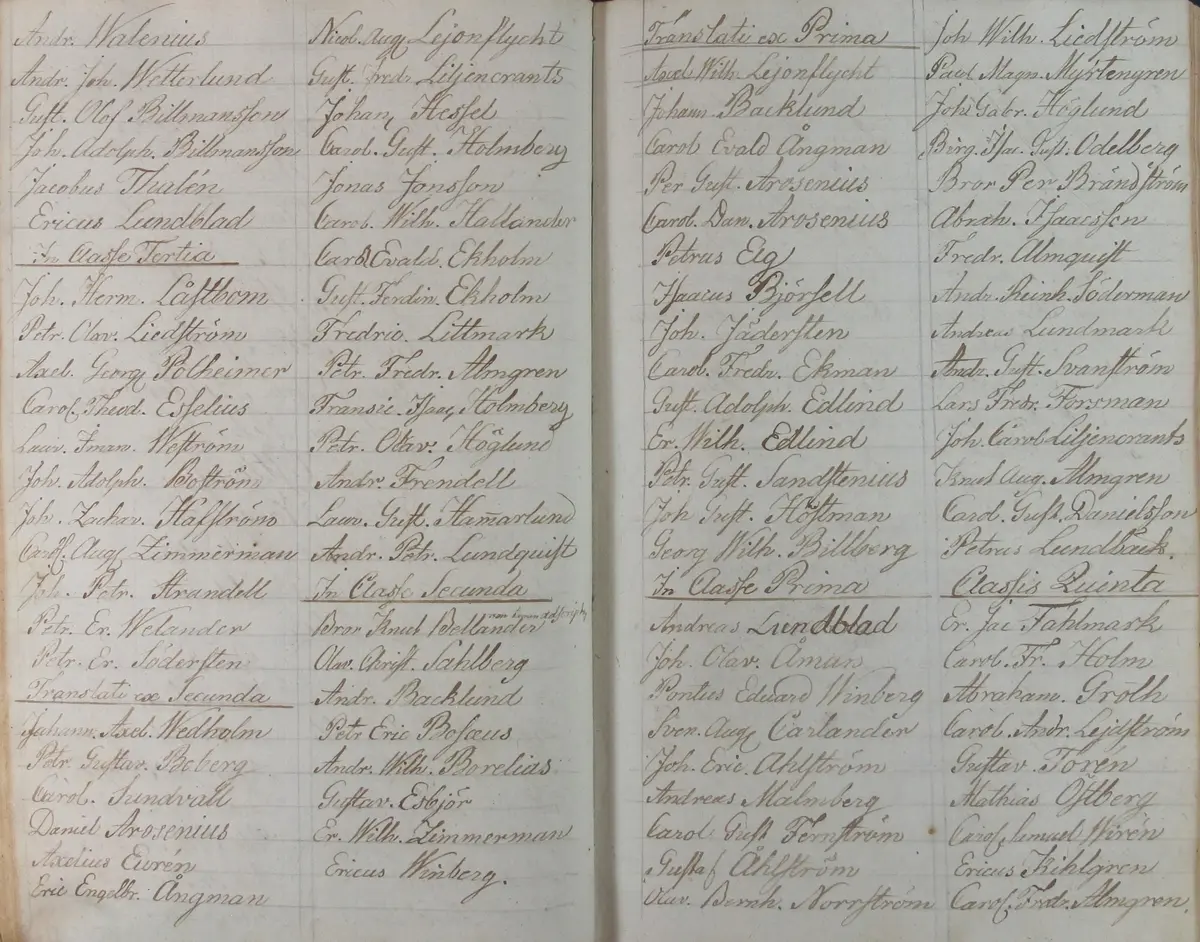 Andr. Walenius
Andr. Joh. Wetterlund
Gust. Olof Billmansson
Joh. Adolph. Billmansson
Jacobus Thalén
Ericus Lundblad
In Classe Tertia
Joh. Herm. Låstbom
Petr. Olav. Liedström
Axel. Georg Polheimer
Carol. Theod. Esselius
Laur. Iman. Weström
Joh. Adolph. Boström
Joh. Zachar. Hafström
Carol. Aug. Zimmerman
Joh. Petr. Strandell
Petr. Er. Welander
Petr. Er. Södersten
Translati ex Secunda
Johann. Axel. Wedholm
Petr. Gustav. Boberg
Carol. Sundvall
Daniel Arosenius
Axelius Eurén
Eric Engelbr. Ångman
Nicol. Aug. Lejonflycht
Gust. Fredr. Liljencrants
Johan Hessel
Carol. Gust. Holmberg
Jonas Jonsson
Carol. Wilh. Hallander
Carol Evald. Ekholm
Gust. Ferdin. Ekholm
Fredric Littmark
Petr. Fredr. Almgren
Fransic. Isaac Holmberg
Petr. Olav. Höglund
Andr. Frendell
Laur. Gust. Ham̅arlund
Andr. Petr. Lundquist
In Classe Secunda
Bror Knut Bellander
Olav. Christ. Sahlberg
Andr. Backlund
Petr Eric Bosæus
Andr. Wilh. Borelius
Gustav. Esbjör
Er. Wilh. Zimmerman
Ericus Winberg.
Translati ex Prima
Axel Wilh. Lejonflycht
Johann. Backlund
Carol Evald Ångman
Per Gust. Arosenius
Carol. Dan. Arosenius
Petrus Elg
Isaacus Björsell
Joh. Jädersten
Carol. Fredr. Ekman
Gust. Adolph. Edlind
Er. Wilh. Edlind
Petr. Gust. Sandstenius
Joh Gust. Höstman
Georg Wilh. Billberg
In Classe Prima
Andreas Lundblad
Joh. Olav. Åman
Pontus Eduard Winberg
Sven. Aug. Carlander
Joh. Eric Ahlström
Andreas Malmberg
Carol Gust Fernström
Gustaf Åhlström
Olav. Bernh. Norrström
Joh Wilh. Liedström
Paul Magn. Myrtengren
Joh Gabr. Höglund
Birg. Isac. Gust. Odelberg
Bror Per Brändström
Abrah. Isaacsson
Fredr. Almquist
Andr. Reinh. Söderman
Andreas Lundmark
Andr. Gust. Svanström
Lars Fredr. Forsman
Joh. Carol Liljencrants
Knut Aug. Almgren
Carol. Gust. Danielsson
Petrus Lundbäck.
Classis Quinta
Er. Jac Fahlmark
Carol. Fr. Holm
Abraham. Gröth
Carol. Andr. Lejdström
Gustav Torén
Mathias Östberg
Carol. Samuel Wirén
Ericus Kihlgren
Carol. Fredr. Almgren.